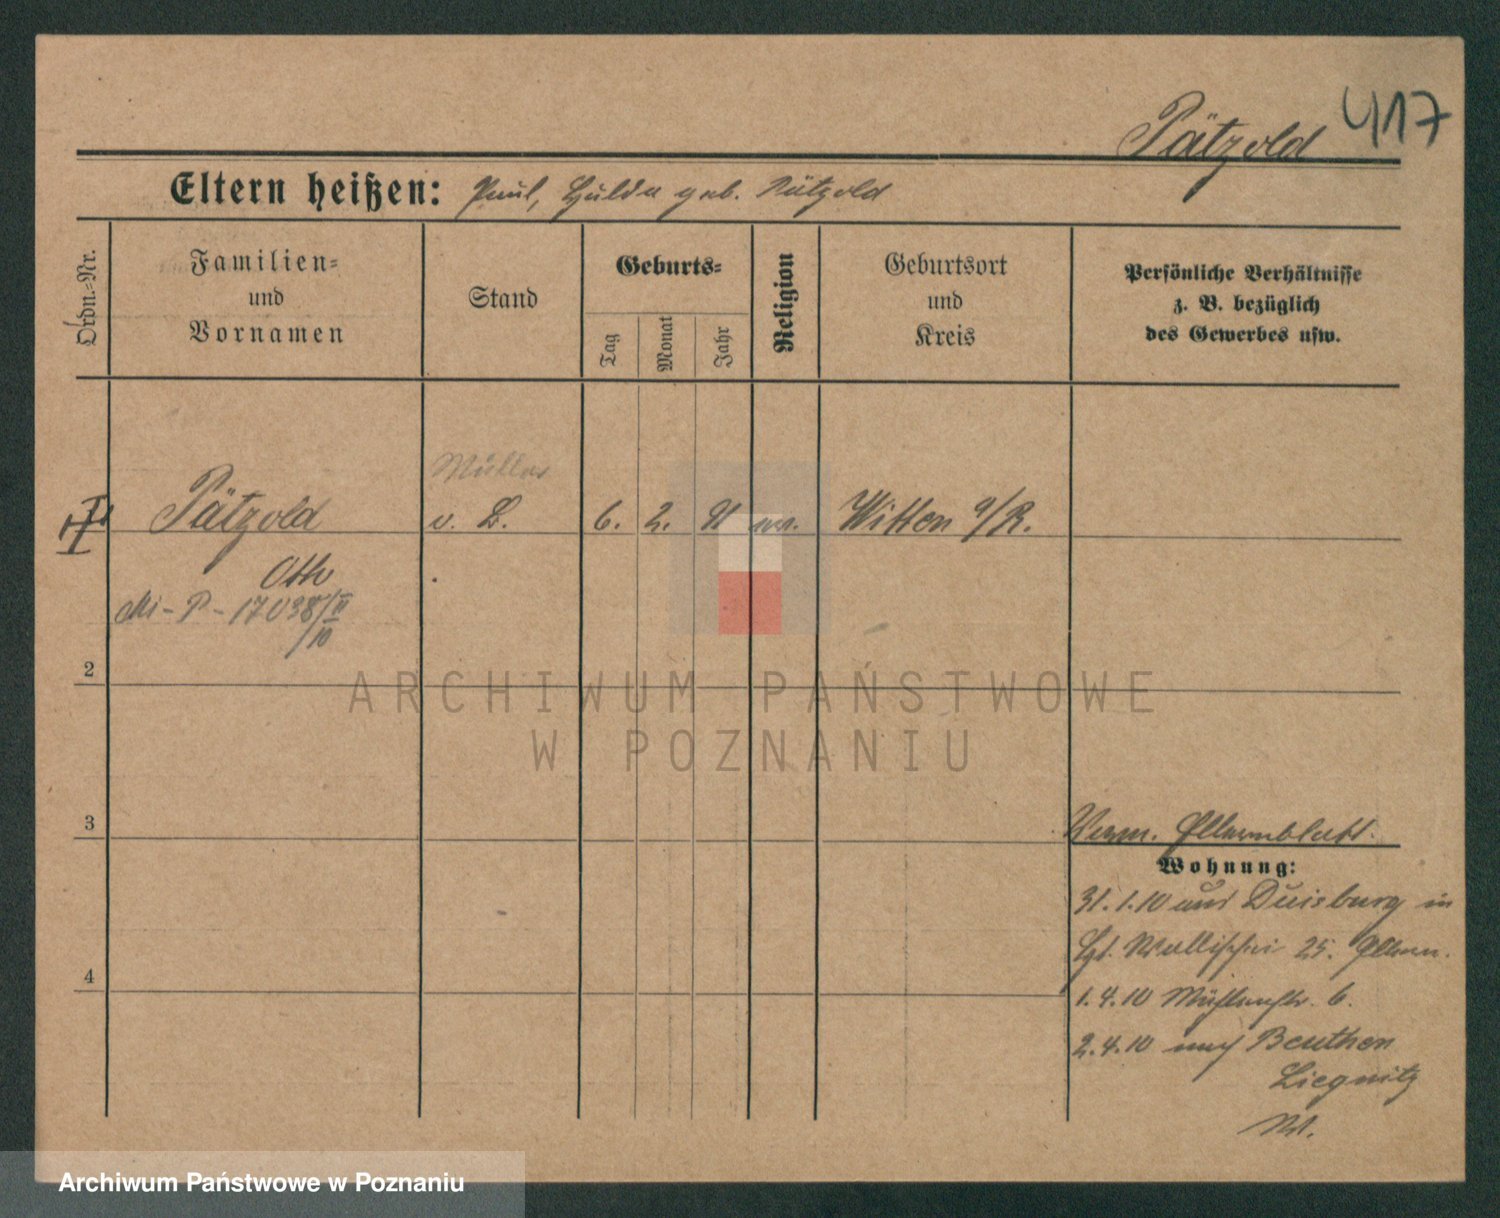 417
Pätzold
Eltern heißen: Paul, Hulda geb. Pätzold
Ordn.-Nr.
Familien-
und
Vornamen
Stand
Geburts-
Tag
Monat
Jahr
Religion
Geburtsort
und
Kreis
Persönliche Verhältnisse
z. B. bezüglich
des Gewerbes usw.
Pätzold
v. L. 6. 2. 91 Witten a/R.
Otto
Mi-P-17038/II
/10
2
3
4
Elternblatt.
Wohnung:
31.1.10 aus Duisburg in
Wallischei 25. Eltern.
1.4.10 6.
2.4.10 nach Beuthen
Liegnitz
ARCHIWUM PAŃSTWOWE
W POZNANIU
Archiwum Państwowe w Poznaniu